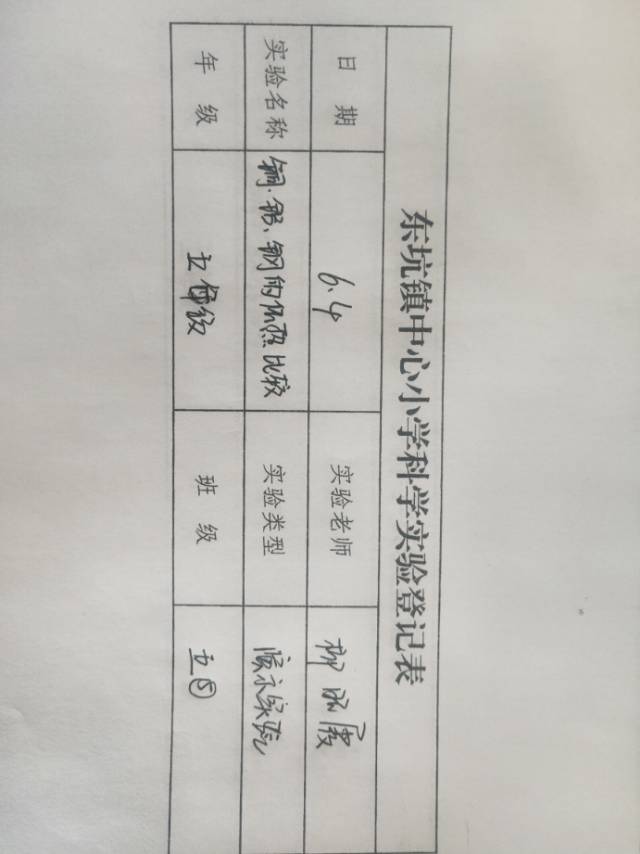 东坑镇中心小学科学实验登记表
日期 6.4 实验老师 柳
实验名称 铜、铝、钢的传热比较 实验类型 演示实验
年级 五年级 班级 五⑤